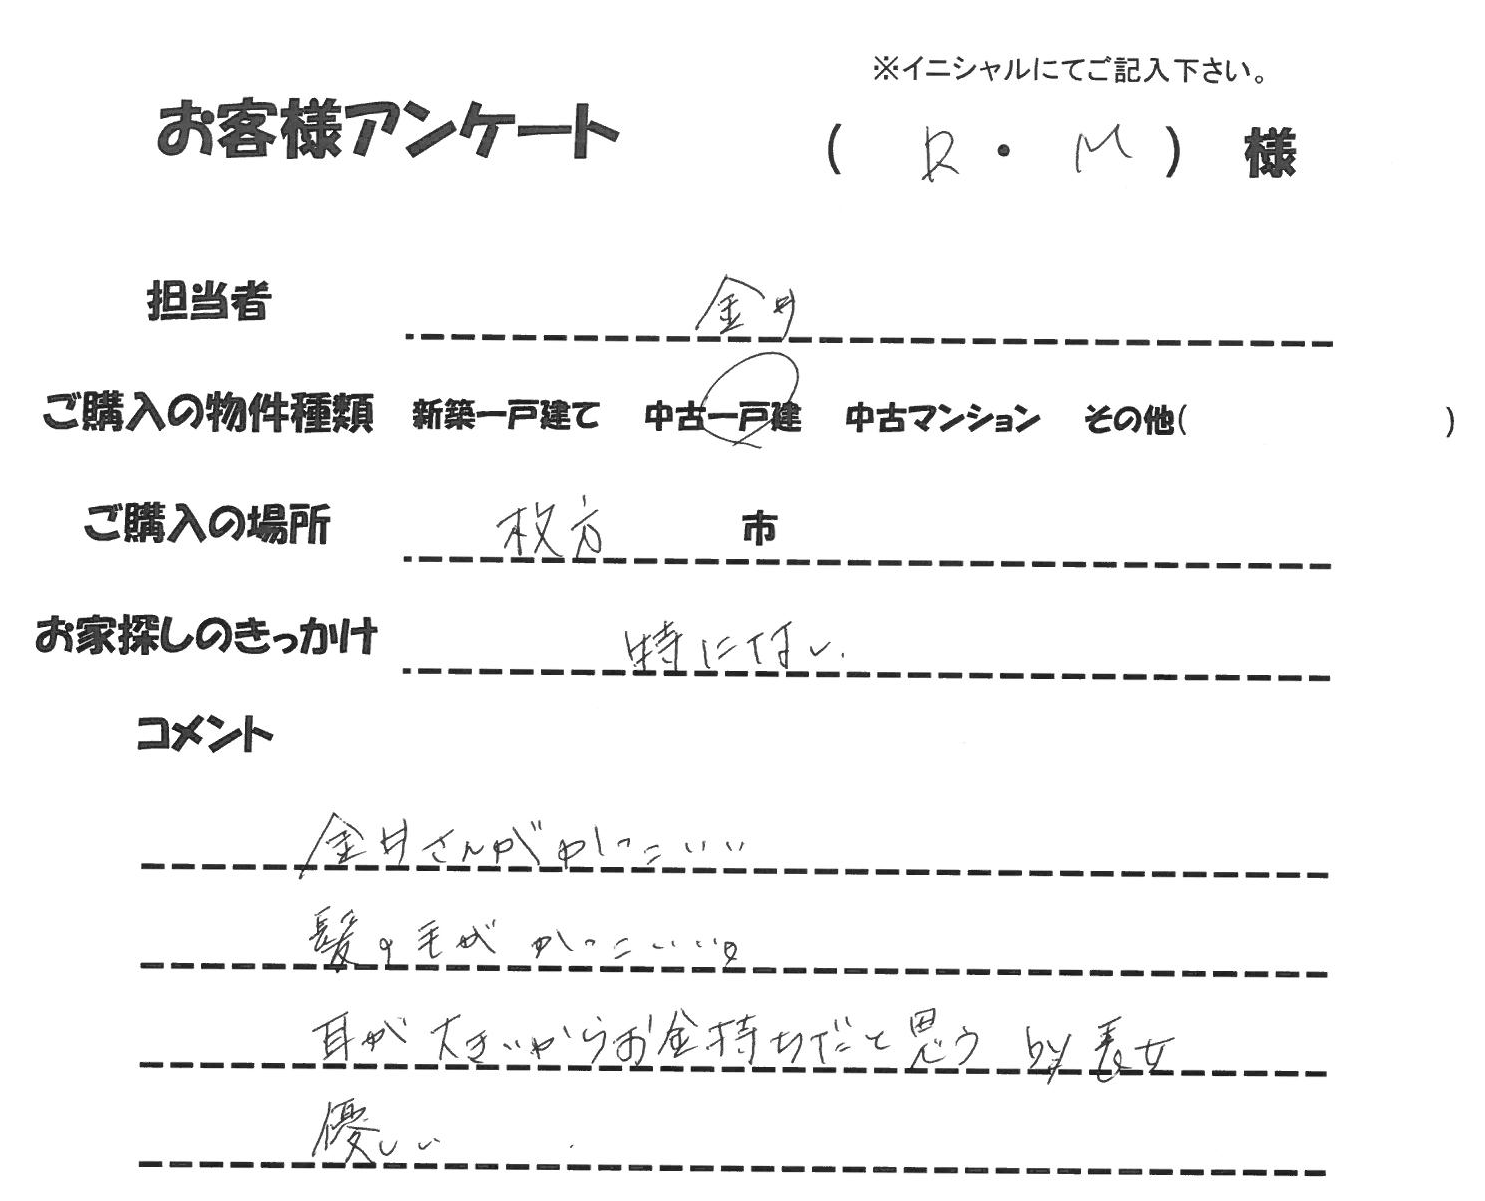 ※イニシャルにてご記入下さい。
お客様アンケート ( R ・ M ) 様
担当者 金井
ご購入の物件種類 新築一戸建て 中古一戸建 中古マンション その他( )
ご購入の場所 枚方 市
お家探しのきっかけ 特にはない.
コメント
金井さんがかっこいい
髪の毛が かっこいい。
耳が大きいからお金持ちだと思う by 長女
優しい